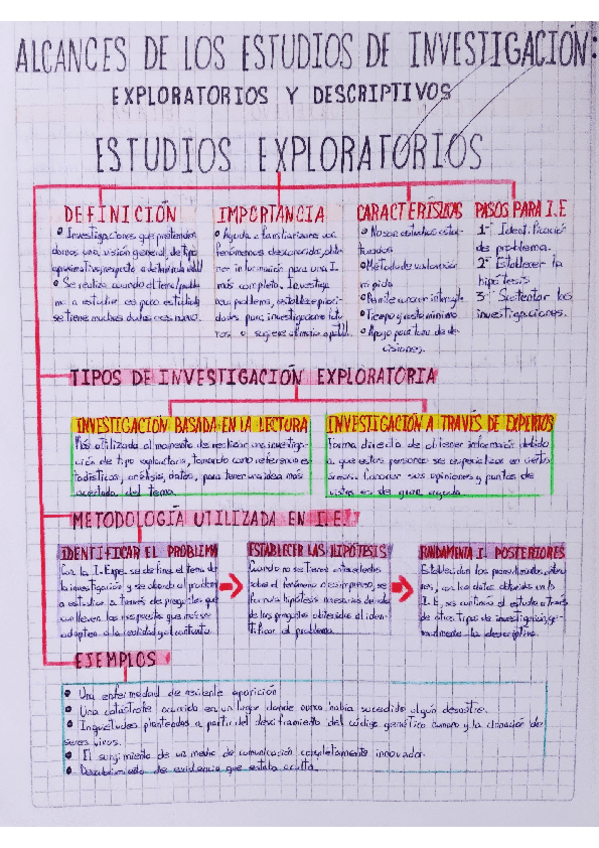 ALCANCES DE LOS ESTUDIOS DE INVESTIGACIÓN:
EXPLORATORIOS Y DESCRIPTIVOS
ESTUDIOS EXPLORATORIOS
DEFINICIÓN
Investigaciones que pretenden
darnos una visión general, de tipo
aproximativo, respecto a
Se realiza cuando el tema/
a estudiar es poco estudiado
se tiene muchas dudas o es nuevo.
IMPORTANCIA
Ayuda a familiarizarse con
fenómenos desconocidos, obte-
ner información para una I.
más completa. Investiga
problemas, establece priori-
dades para investigaciones futu-
ras o sugiere
CARACTERÍSTICAS
No son estudios estruc-
turados
Método de valoración
rápida
Permite conocer
Tiempo y costo mínimo
Apoyo para toma de de-
cisiones.
PASOS PARA I.E
1- Identificación
de problema.
2- Establecer la
hipótesis
3- Sustentar las
investigaciones.
TIPOS DE INVESTIGACIÓN EXPLORATORIA
INVESTIGACIÓN BASADA EN LA LECTURA
Más utilizada al momento de realizar una investiga-
ción de tipo exploratoria, tomando como referencia es-
tadísticas, análisis, datos, para tener una idea más
acertada del tema.
INVESTIGACIÓN A TRAVÉS DE EXPERTOS
Forma directa de obtener información debido
a que estas personas se especializan en ciertas
áreas. Conocer sus opiniones y puntos de
vistas es de gran ayuda.
METODOLOGÍA UTILIZADA EN I.E.
IDENTIFICAR EL PROBLEMA
Con la I. Explo. se define el tema de
la investigación y se aborda el problema
a estudiar a través de preguntas que
conlleven las respuestas que mejor se
adapten a la realidad y al contexto
ESTABLECER LAS HIPÓTESIS
Cuando no se tienen antecedentes
sobre el fenómeno es impreciso, se
formula hipótesis necesarias desde
de las preguntas obtenidas al iden-
tificar el problema.
FUNDAMENTA I. POSTERIORES
Establecidos los procedimientos
con los datos obtenidos en la
I.E, se continúa el estudio a través
de otros tipos de investigación, ge-
neralmente la descriptiva.
EJEMPLOS
Una enfermedad de reciente aparición
Una catástrofe ocurrida en un lugar donde nunca había sucedido algún desastre.
Inquietudes planteadas a partir del desciframiento del código genético humano y la clonación de
seres vivos.
El surgimiento de un medio de comunicación completamente innovador.
Descubrimiento de evidencia que estaba oculta.